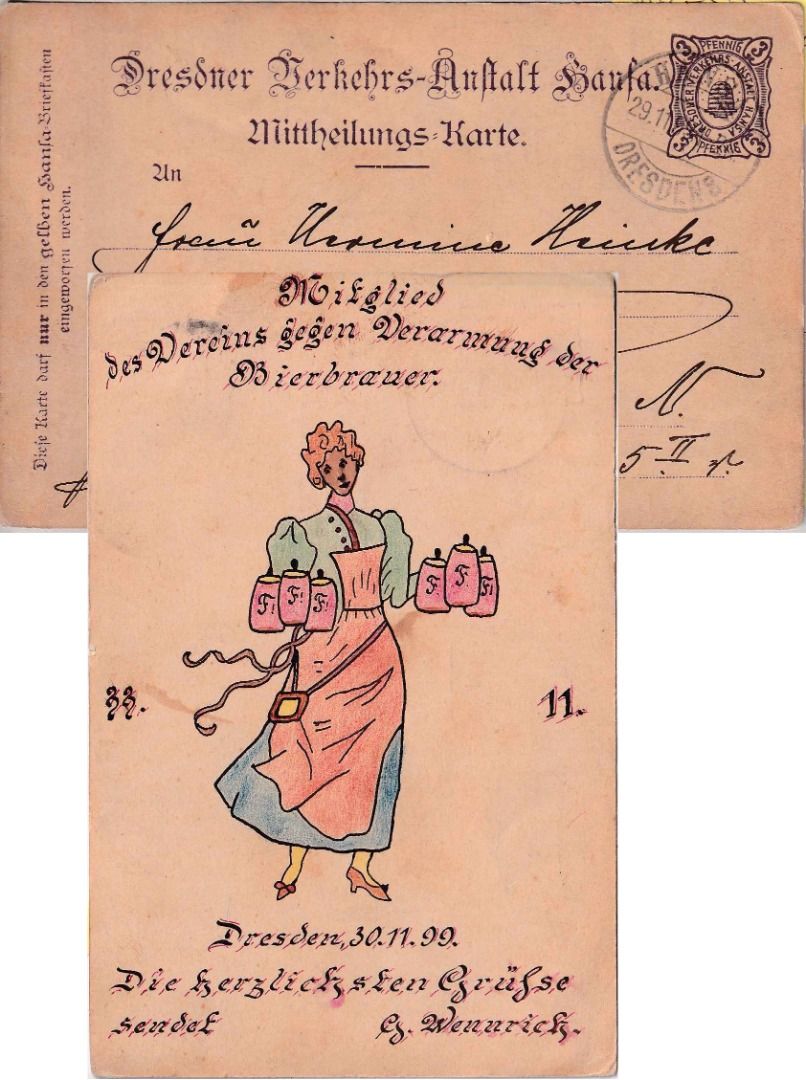 Dresdner Verkehrs-Anstalt Hansa.
Mittheilungs-Karte.
3 PFENNIG 3
DRESDNER VERKEHRS-ANSTALT HANSA
3 PFENNIG 3
29.11
DRESDEN
An
Frau Hermine Heinke
N.
5 II r.
Diese Karte darf nur in den gelben Hansa-Briefkasten
eingeworfen werden.
Mitglied
des Vereins gegen Verarmung der
Bierbrauer.
F! F! F! F F F!
33. 11.
Dresden, 30.11.99.
Die herzlichsten Grühse
sendet G. Wennrich.